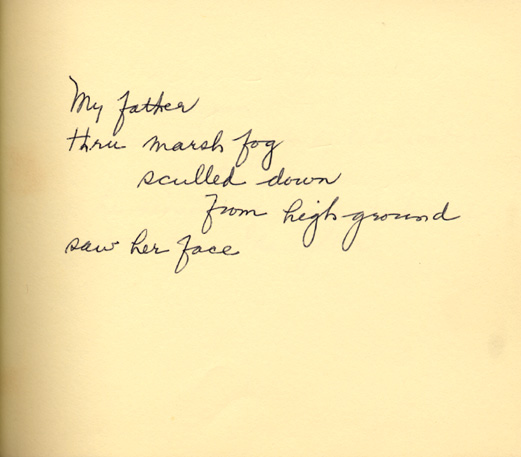 My father
thru marsh fog
sculled down
from high ground
saw her face